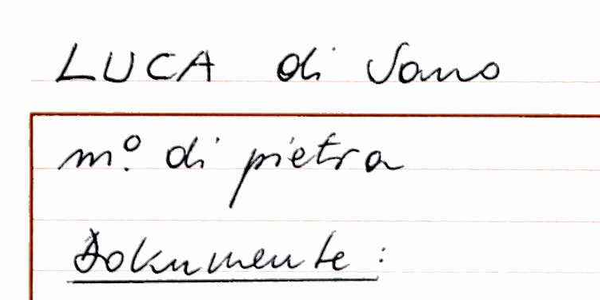 LUCA di Sano
mº. di pietra
Dokumente: